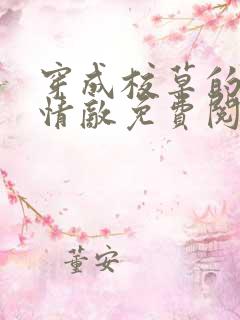 穿成校草的
情敌免费阅
董安